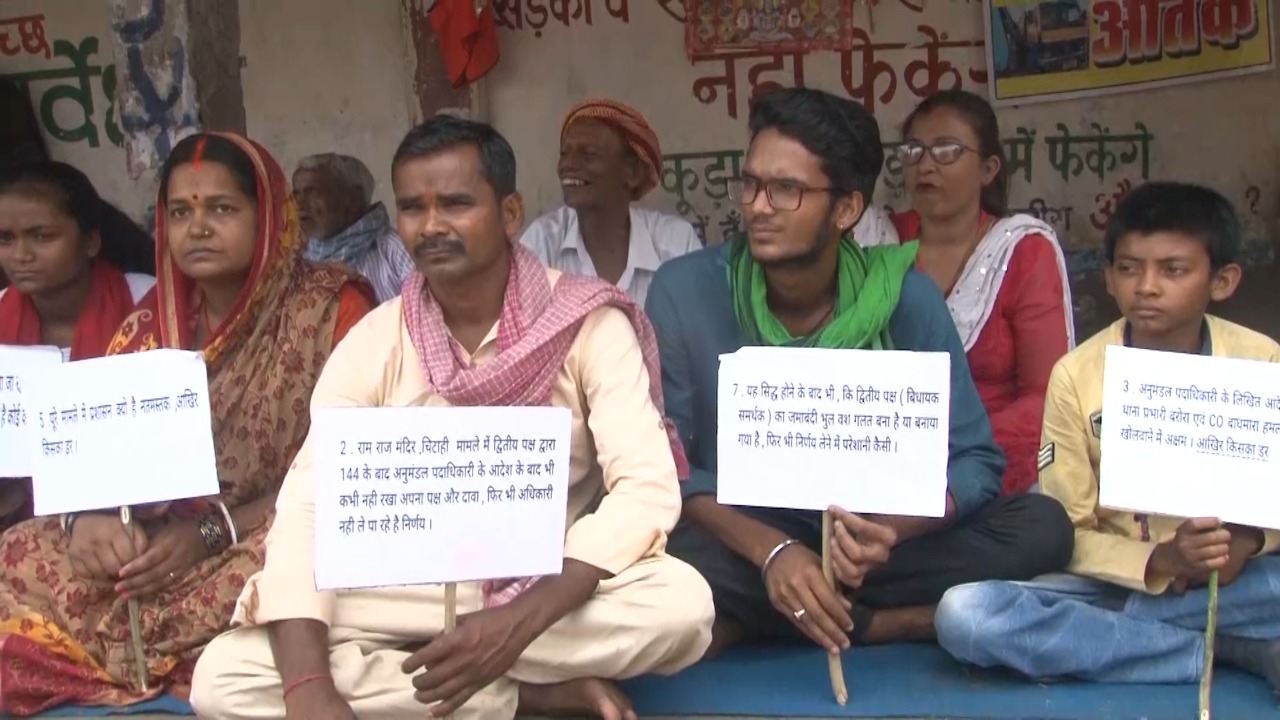 च्छ
सड़कों व
नहीं फेकें
आतंक
कूड़ा
में फेकेंगे
?
5. पूरे मामले में प्रशासन क्यो है नतमस्तक ,आखिर
किसका डर ।
2 . राम राज मंदिर ,चिटाही मामले में द्वितीय पक्ष द्वारा
144 के बाद अनुमंडल पदाधिकारी के आदेश के बाद भी
कभी नही रखा अपना पक्ष और दावा , फिर भी अधिकारी
नही ले पा रहे है निर्णय ।
7 . यह सिद्ध होने के बाद भी , कि द्वितीय पक्ष ( बिधायक
समर्थक ) का जमाबंदी भुल वश गलत बना है या बनाया
गया है , फिर भी निर्णय लेने में परेशानी कैसी ।
3 . अनुमंडल पदाधिकारी के लिखित आदे
थाना प्रभारी बरोरा एवं CO बाघमारा हमल
खोलवाने में अक्षम । आखिर किसका डर